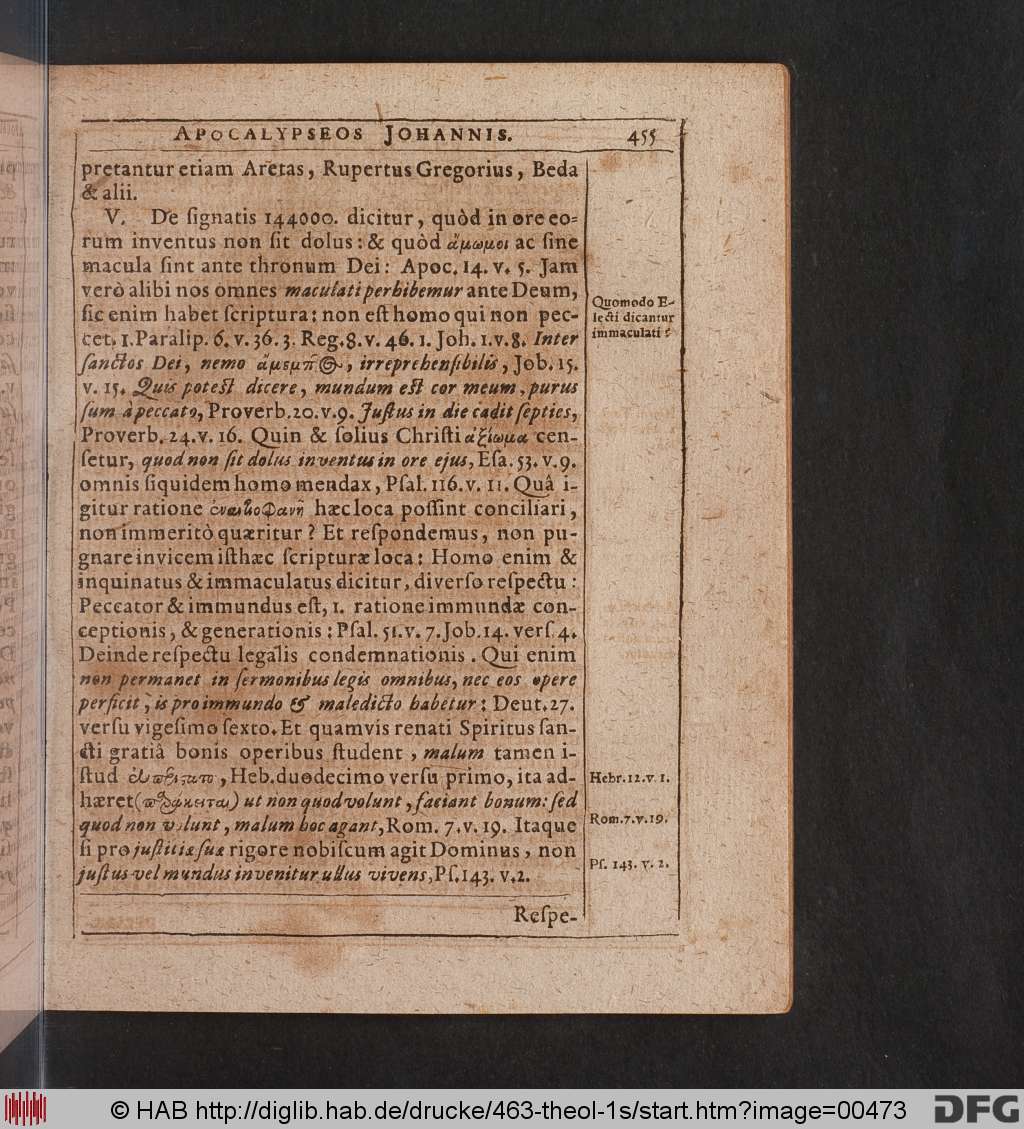 APOCALYPSEOS JOHANNIS. 455
pretantur etiam Aretas, Rupertus Gregorius, Beda
& alii.
V. De ſignatis 144000. dicitur, quòd in ore eo=
rum inventus non ſit dolus: & quòd ἄμωμοι ac ſine
macula ſint ante thronum Dei: Apoc. 14. v. 5. Jam
verò alibi nos omnes maculati perhibemur ante Deum,
ſic enim habet ſcriptura: non eſt homo qui non pec-
cet. 1. Paralip. 6. v. 36. 3. Reg. 8. v. 46. 1. Joh. 1. v. 8. Inter
ſanctos Dei, nemo ἄμεμπτος, irreprehenſibilis, Job. 15.
v. 15. Quis poteſt dicere, mundum eſt cor meum, purus
ſum à peccato, Proverb. 20. v. 9. Juſtus in die cadit ſepties,
Proverb. 24. v. 16. Quin & ſolius Chriſti ἀξίωμα cen-
ſetur, quod non ſit dolus inventus in ore ejus, Eſa. 53. v. 9.
omnis ſiquidem homo mendax, Pſal. 116. v. 11. Quâ i-
gitur ratione ἐναντιοφανῆ hæc loca poſſint conciliari,
non immeritò quæritur? Et reſpondemus, non pu-
gnare invicem iſthæc ſcripturæ loca: Homo enim &
inquinatus & immaculatus dicitur, diverſo reſpectu:
Peccator & immundus eſt, 1. ratione immundæ con-
ceptionis, & generationis: Pſal. 51. v. 7. Job. 14. verſ. 4.
Deinde reſpectu legalis condemnationis. Qui enim
non permanet in ſermonibus legis omnibus, nec eos opere
perficit, is pro immundo & maledicto habetur: Deut. 27.
verſu vigeſimo ſexto. Et quamvis renati Spiritus ſan-
cti gratiâ bonis operibus ſtudent, malum tamen i-
ſtud, Heb. duodecimo verſu primo, ita ad-
hæret ut non quod volunt, faciant bonum: ſed
quod non volunt, malum hoc agant, Rom. 7. v. 19. Itaque
ſi pro juſtitiæ ſuæ rigore nobiſcum agit Dominus, non
juſtus vel mundus invenitur ullus vivens, Pſ. 143. v. 2.
Reſpe-
Quomodo E-
lecti dicantur
immaculati?
Hebr. 12. v. 1.
Rom. 7. v. 19.
Pſ. 143. v. 2.
© HAB http://diglib.hab.de/drucke/463-theol-1s/start.htm?image=00473
DFG